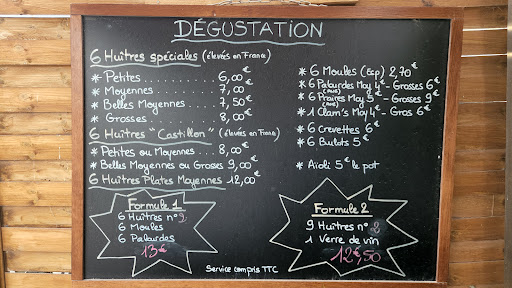 DÉGUSTATION
6 Huîtres spéciales (élevés en France)
* Petites . . . . . . . . . . 6,00€
* Moyennes . . . . . . . . 7,00
* Belles Moyennes . . . . 7,50€
* Grosses . . . . . . . . . 8,00€
6 Huîtres "Castillon" (élevés en France)
* Petites ou Moyennes . . . 8,00€
* Belles Moyennes ou Grosses 9,00€
6 Huîtres Plates Moyennes 12,00€
* 6 Moules (Esp) 2,70€
* 6 Palourdes Moy 4€ - Grosses 6€
* 6 Praires Moy 5€ - Grosses 9€
* 1 Clam's Moy 4€ - Gros 6€
* 6 Crevettes 6€
* 6 Bulots 5€
* Aïoli 5€ le pot
Formule 1
6 Huîtres n°3
6 Moules
6 Palourdes
13€
Formule 2
9 Huîtres n°2
1 Verre de vin
12€,50
Service compris TTC